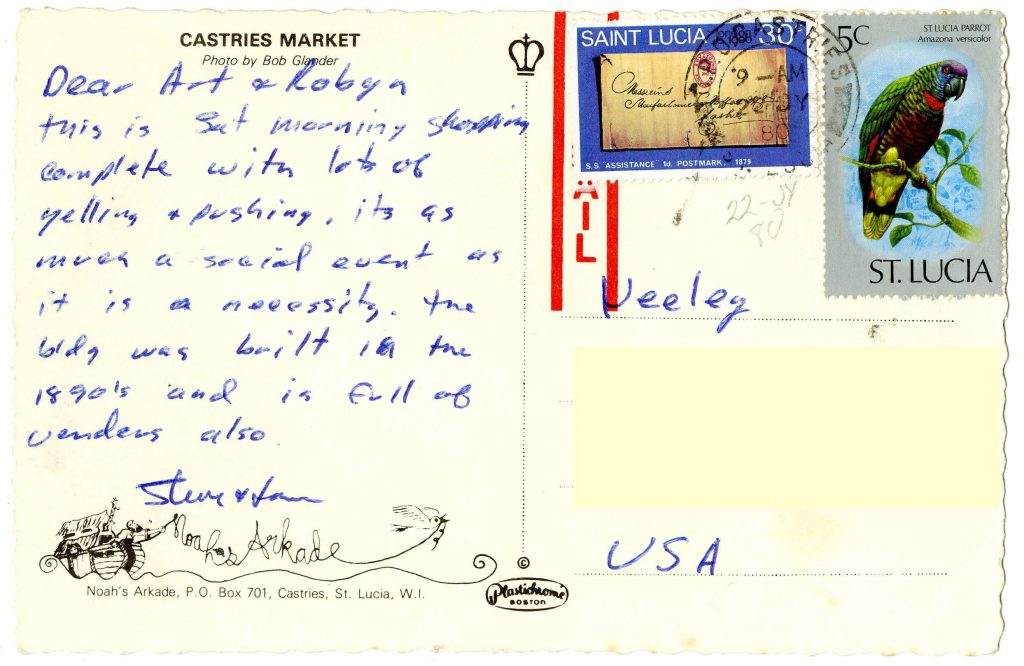 CASTRIES MARKET
Photo by Bob Glander
Dear Art & Robyn
this is Sat morning shopping
complete with lots of
yelling & pushing. its as
much a social event as
it is a necessity. the
bldg was built in the
1890's and is full of
venders also.
Steve &
Noah's Arkade
Noah's Arkade, P.O. Box 701, Castries, St. Lucia, W.I.
©
Plastichrome
BOSTON
SAINT LUCIA 30c
S.S. "ASSISTANCE" 1d. POSTMARK 1879
CASTRIES
9 - AM
JY
80
5c
ST LUCIA PARROT
Amazona versicolor
ST. LUCIA
ÄIL
22-JY
80
Neeley
USA